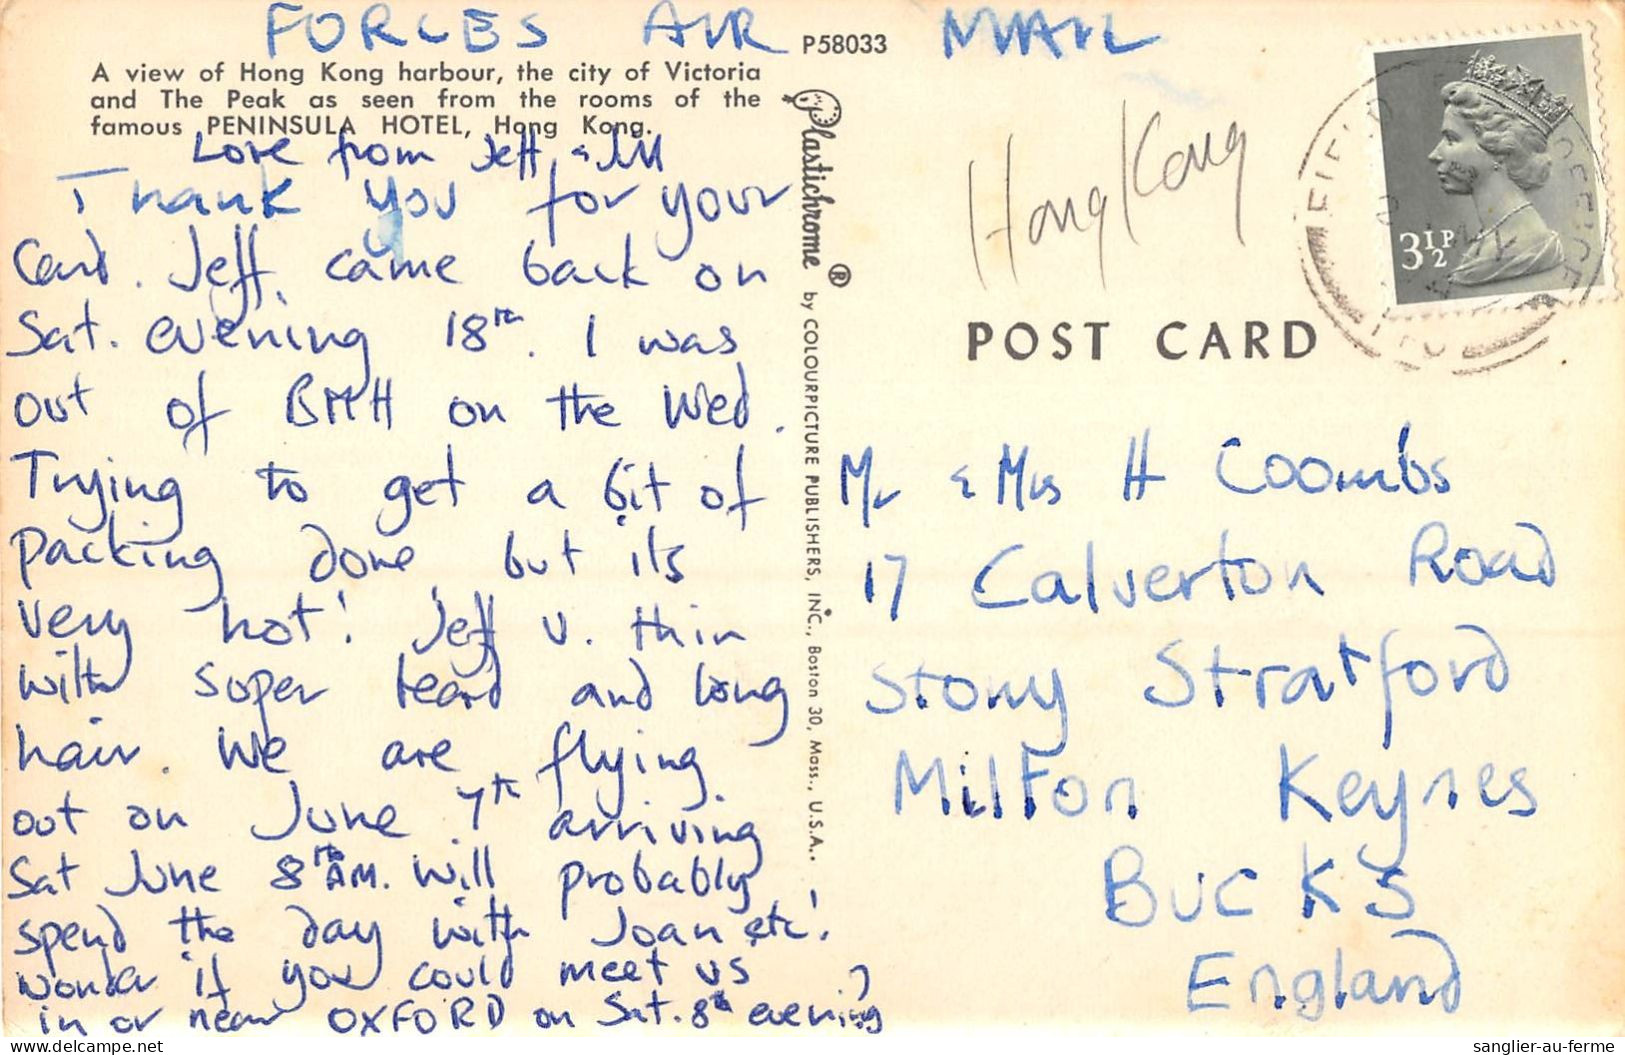 FORCES AIR MAIL
P58033
A view of Hong Kong harbour, the city of Victoria
and The Peak as seen from the rooms of the
famous PENINSULA HOTEL, Hong Kong.
Love from Jeff &
Thank you for your
Card. Jeff came back on
Sat. evening 18th. I was
out of BMH on the Wed.
Trying to get a bit of
packing done, but its
very hot! Jeff v. thin
with super beard and long
hair. We are flying
out on June 7th arriving
Sat June 8th AM. Will probably
spend the day with Joan etc!
wonder if you could meet us
in or near OXFORD on Sat. 8th evening?
Plastichrome ® by COLOURPICTURE PUBLISHERS, INC., Boston 30, Mass., U.S.A.
Hong Kong
3½P
FIELD OFFICE
POST CARD
Mr & Mrs H Coombs
17 Calverton Road
Stony Stratford
Milton Keynes
BUCKS
England
sanglier-au-ferme
www.delcampe.net